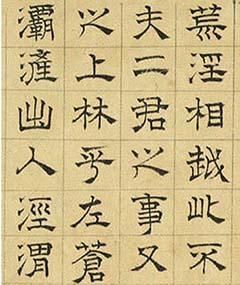 荒淫相越此不
夫二君之事又
之上林乎左蒼
灞滻出入涇渭